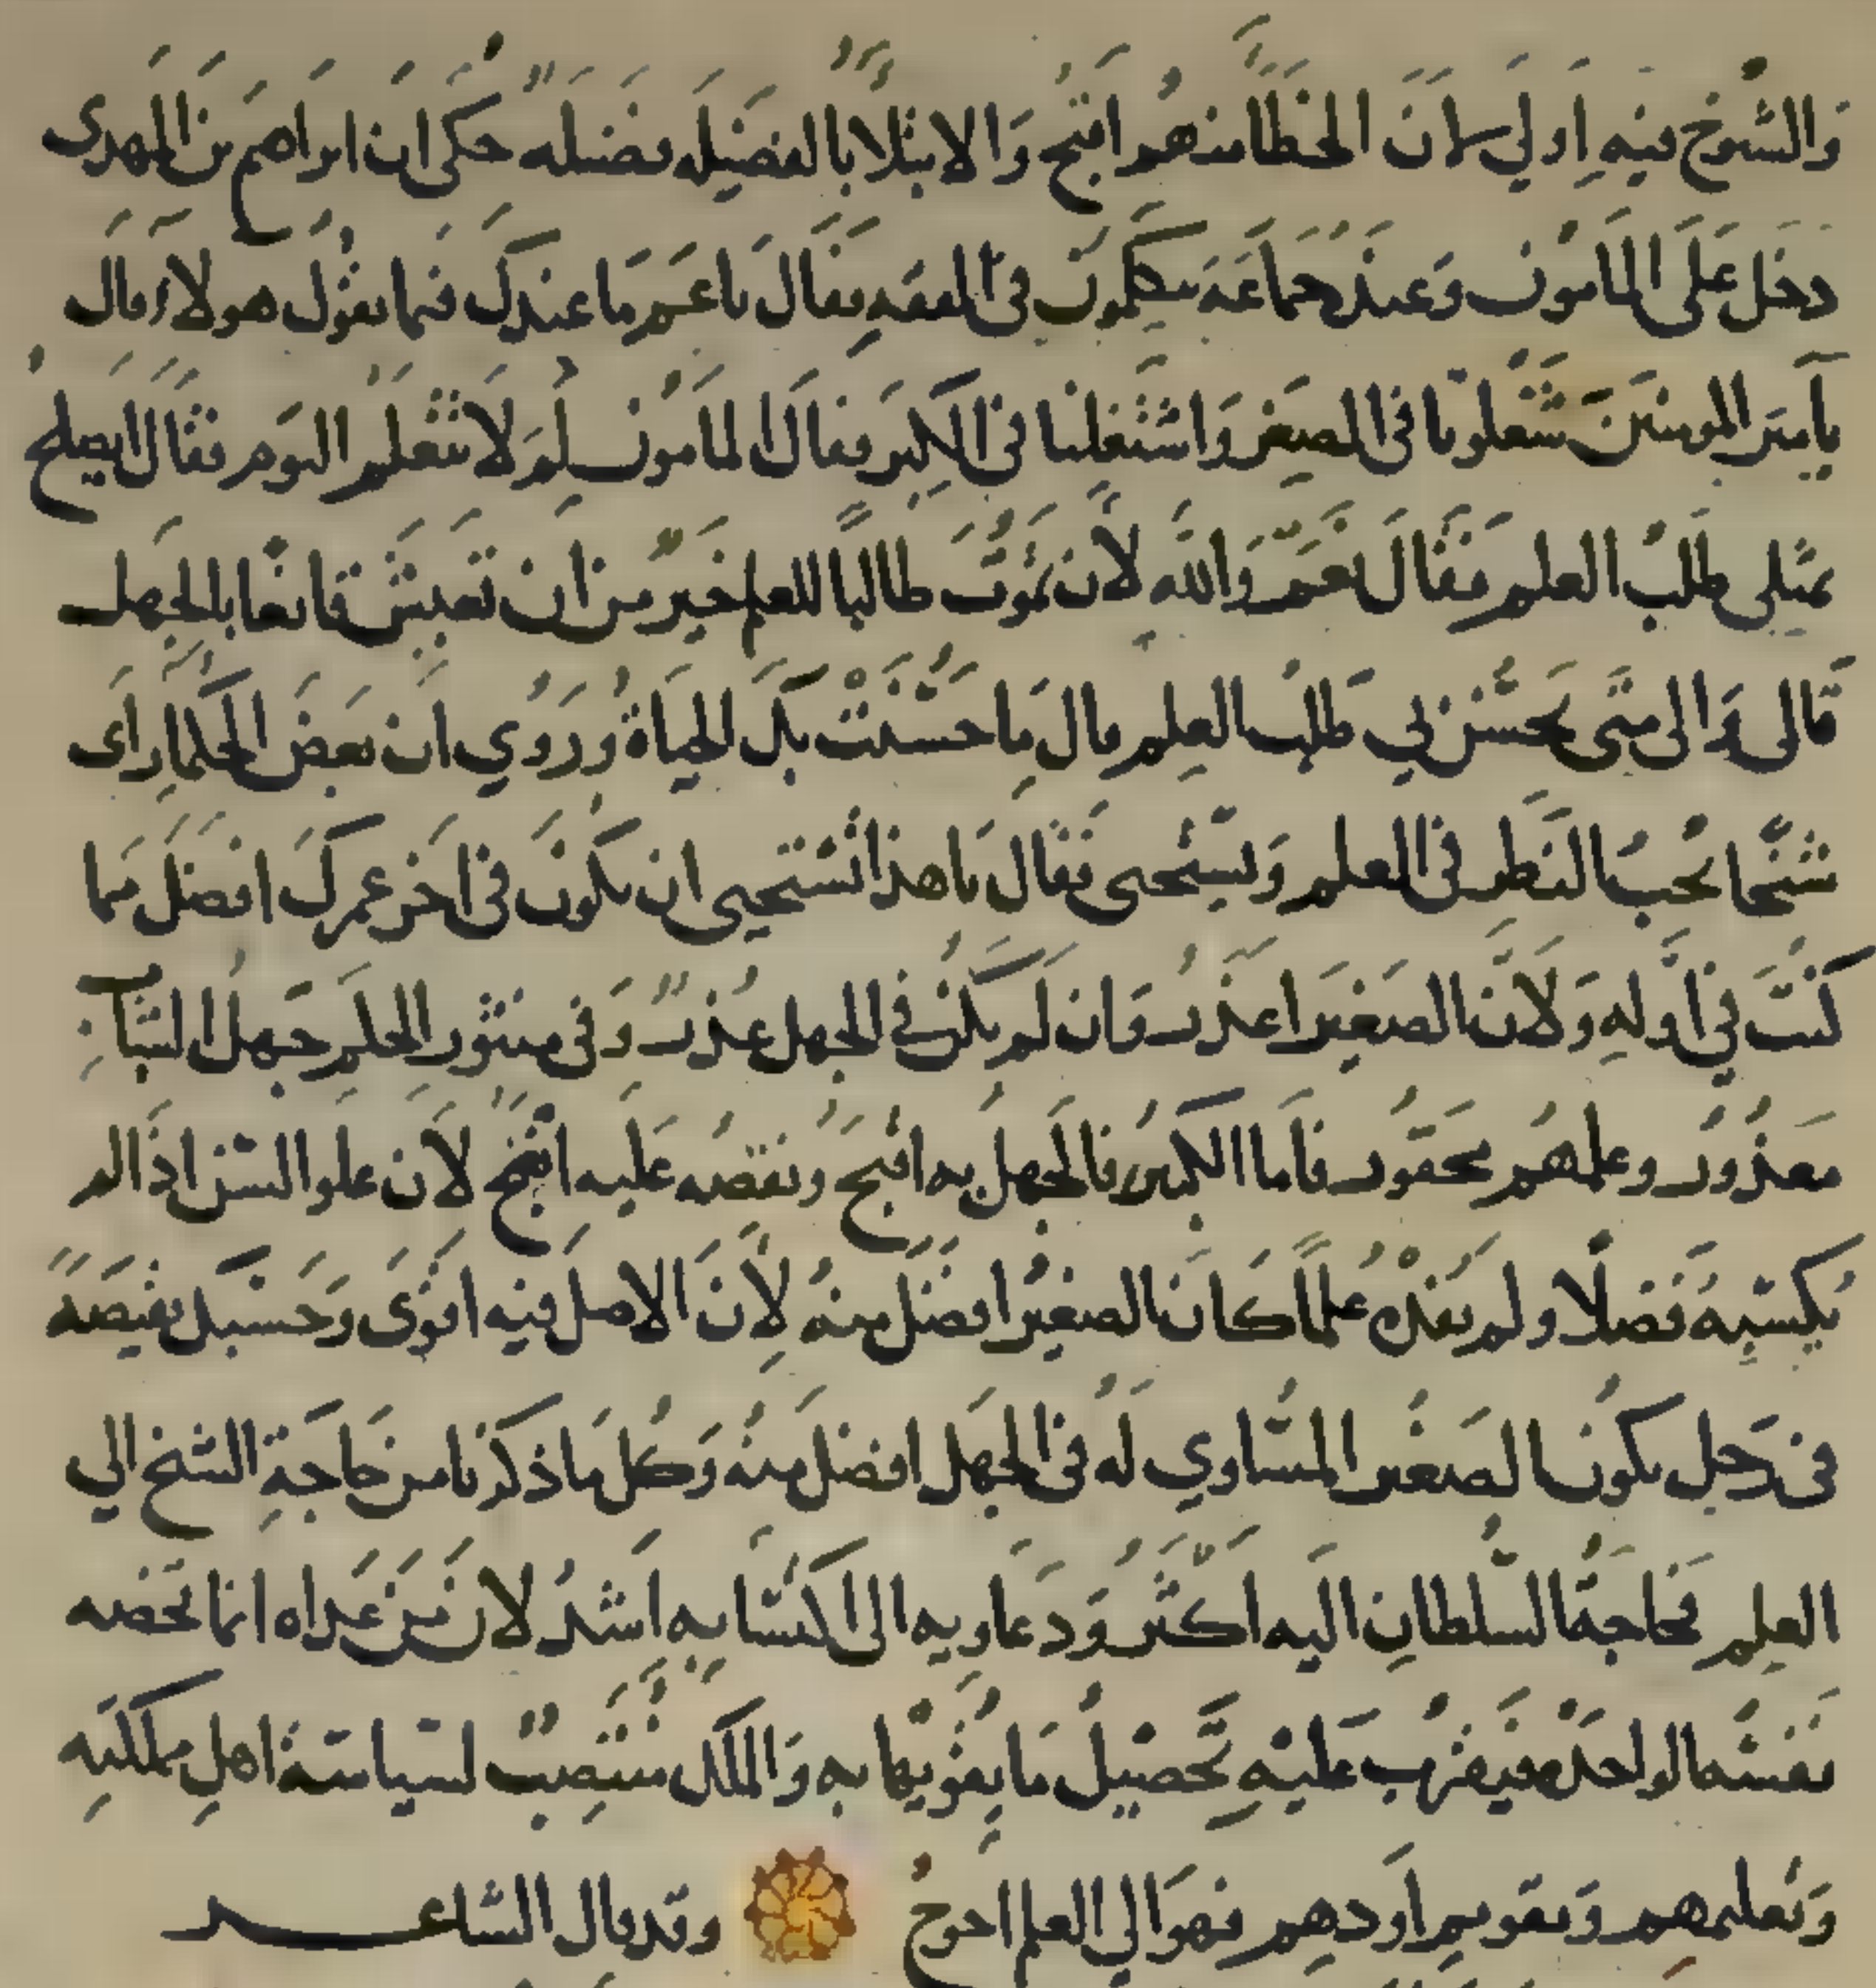 وَالشُّيوخ فيهِ اَولَي لانَ الخَطَأَ منهُم اَقبَحُ وَالابتلآءُ بالفَضِيلَه فضيلَه حكىَ انَ ابرَاهيم بنَ المَهدِى
دخَل عَلَى المَامُون وَعندَهُ جَماعَة يَتكلمُونَ فى الفقهِ فقَالَ ياعَمِّ مَا عندَكَ فيَما يقُول هولآءِ قال
يا آميَر المومنيَن شَغَلُونا فى الصِغَر وَاشتغَلنا فى الكِبَر فقالَ المَامُون لِمَ لاَ تتعَلمُ اليَوم فقَالَ ايَصلحُ
بمثلِى طَلَبُ العلم فقَالَ نعَمَ وَاللهِ لاَن تمُوتَ طالبًا للعلم خَيرٌ من اَن تَعيشَ قانعًا بالجَهل
قَالَ وَالى مَتَى يَحسُن بي طَلبُ العِلم قال مَا حَسُنَتْ بكَ الحَيَاة وَرُوي اَن بعَض الحُكمآءِ رَاَى
شيَخًا يُحبُ النَظَر فى العلم وَيستَحيى فقَالَ ياهذا اَتستَحيى ان تكُونَ فى اَخِر عمرِكَ افضَل مما
كُنتَ في اَولهِ وَلاَنَ الصَغِيَر اعذَرُ وَان لَم يَكُن في الجهل عُذرٌ وَفى منثُور الحِكَم جَهلُ الشَبابِ
مَعذُورٌ وعلمهُم مَحقُور فاَمَا الكَبيُر فالجَهلُ بهِ اَقبَحُ وَنقَصُه عَليهِ اَفضَحُ لاَن علو السّنِ اِذَا لم
يُكسِبهُ فَضلاً ولم يُفِدْهُ علمًا كَانَ الصغِيُر افضَلَ منهُ لاَنَ الاصلَ فيهِ اَقوَى وَحَسبكَ نقيصَةً
فى رَجل يكونُ الصَغيُر المسَاوي لَه فى الجَهل افضلَ منهُ وَكُل مَا ذكَرنَا من حَاجَةِ الشيخ الي
العِلم فَحاجَةُ السُلطانِ اليَهِ اَكثرُ وَدعَاويهِ الى اكتسَابهِ اَشدُ لاَن مَن عدَاه انما تَخصّه
نفسُهُ الوَاحدَة فيَقرُب عَليهِ تَحصيلُ مَا يُقَوّيها بهِ وَالملكُ منتَصِبٌ لسِياسَة اهلِ مملكَتِهِ
وَتعليمهم وَتقويم اَوَدهِم فهوَ الي العلم احوَجُ وقد قال الشاعــر